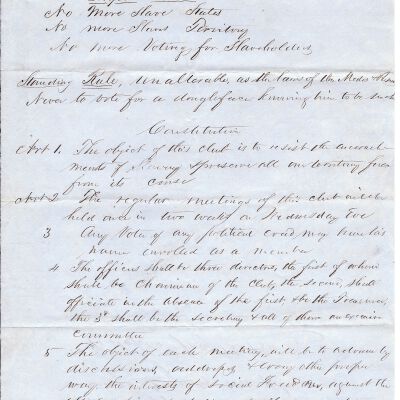 No More Slave States
No more Slave Territory
No more Voting for Slaveholders
Standing Rule, unalterable, as the laws of the Medes &
Never to vote for a doughface knowing him to be such
Constitution
Art 1. The object of this club is to resist the encroach
ments of Slavery & preserve all our territory free
from its curse
Art 2 The regular meetings of this club will be
held once in two weeks on Wednesday Eve
3 Any Voter of any political creed may have his
name enrolled as a member
4 The officers shall be three directors, the first of whom
shall be Chairman of the Club, the second, shall
officiate in the absence of the first, & be the Treasurer,
the 3d shall be the secretary & all of them an
Committee
5 The object of each meeting, will be to advance by
discussions, addresses, & every other proper
way the interests of against the